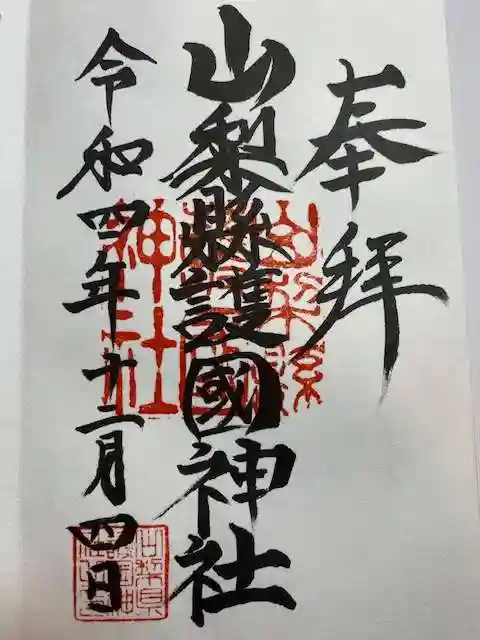 奉拝
山梨縣護國神社
令和四年十二月四日